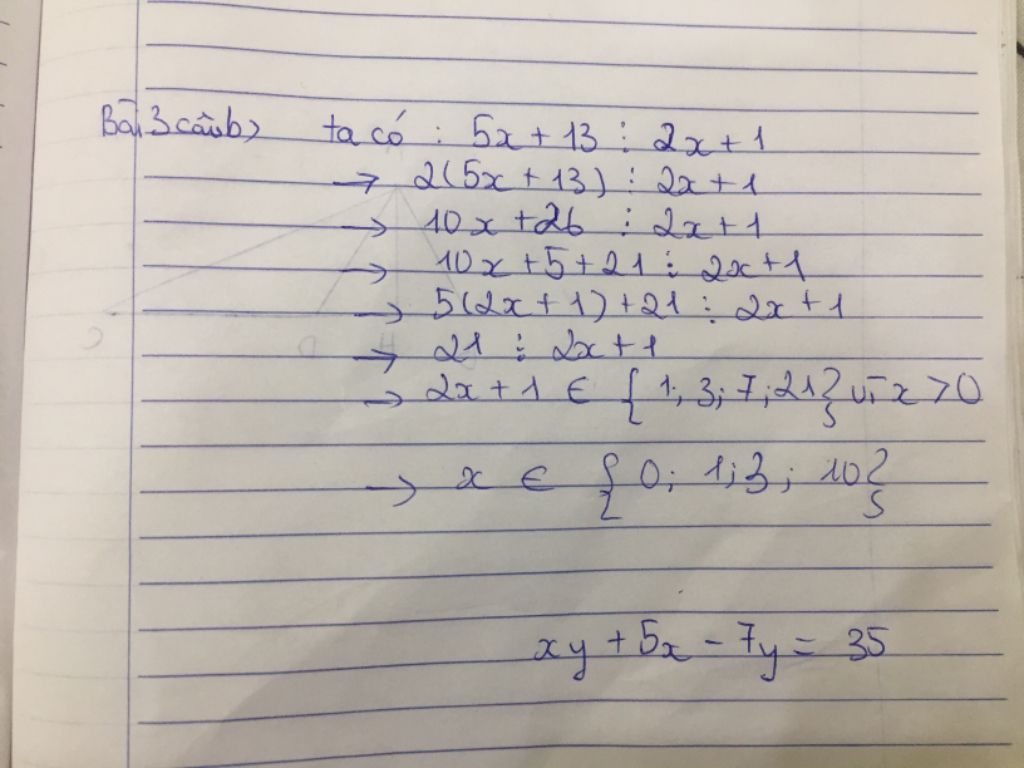 Bài 3 câu b) ta có : 5x + 13 ⋮ 2x + 1
→ 2(5x + 13) ⋮ 2x + 1
→ 10x + 26 ⋮ 2x + 1
→ 10x + 5 + 21 ⋮ 2x + 1
→ 5(2x + 1) + 21 ⋮ 2x + 1
→ 21 ⋮ 2x + 1
→ 2x + 1 ∈ { 1; 3; 7; 21} vì x > 0
→ x ∈ { 0; 1; 3; 10}
xy + 5x - 7y = 35